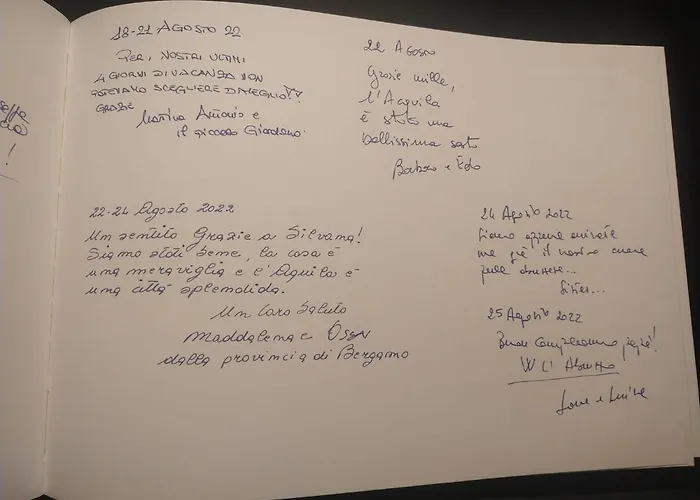 18-21 AGOSTO 22
PER I NOSTRI ULTIMI
4 GIORNI DI VACANZA NON
POTEVAMO SCEGLIERE DI MEGLIO!!
GRAZIE
Martina Antonio e
il piccolo Giordano
22 AGOSTO
Grazie mille,
l'Aquila
è stata una
bellissima
22-24 Agosto 2022
Un sentito Grazie a Silvana!
Siamo stati bene, la casa è
una meraviglia e l'Aquila è
una città splendida.
Un Caro Saluto
Maddalena e
dalla provincia di Bergamo
24 Agosto 2022
Siamo appena arrivate
ma già il nostro cuore
25 Agosto 2022
Buon Compleanno papà!
W L'Abruzzo